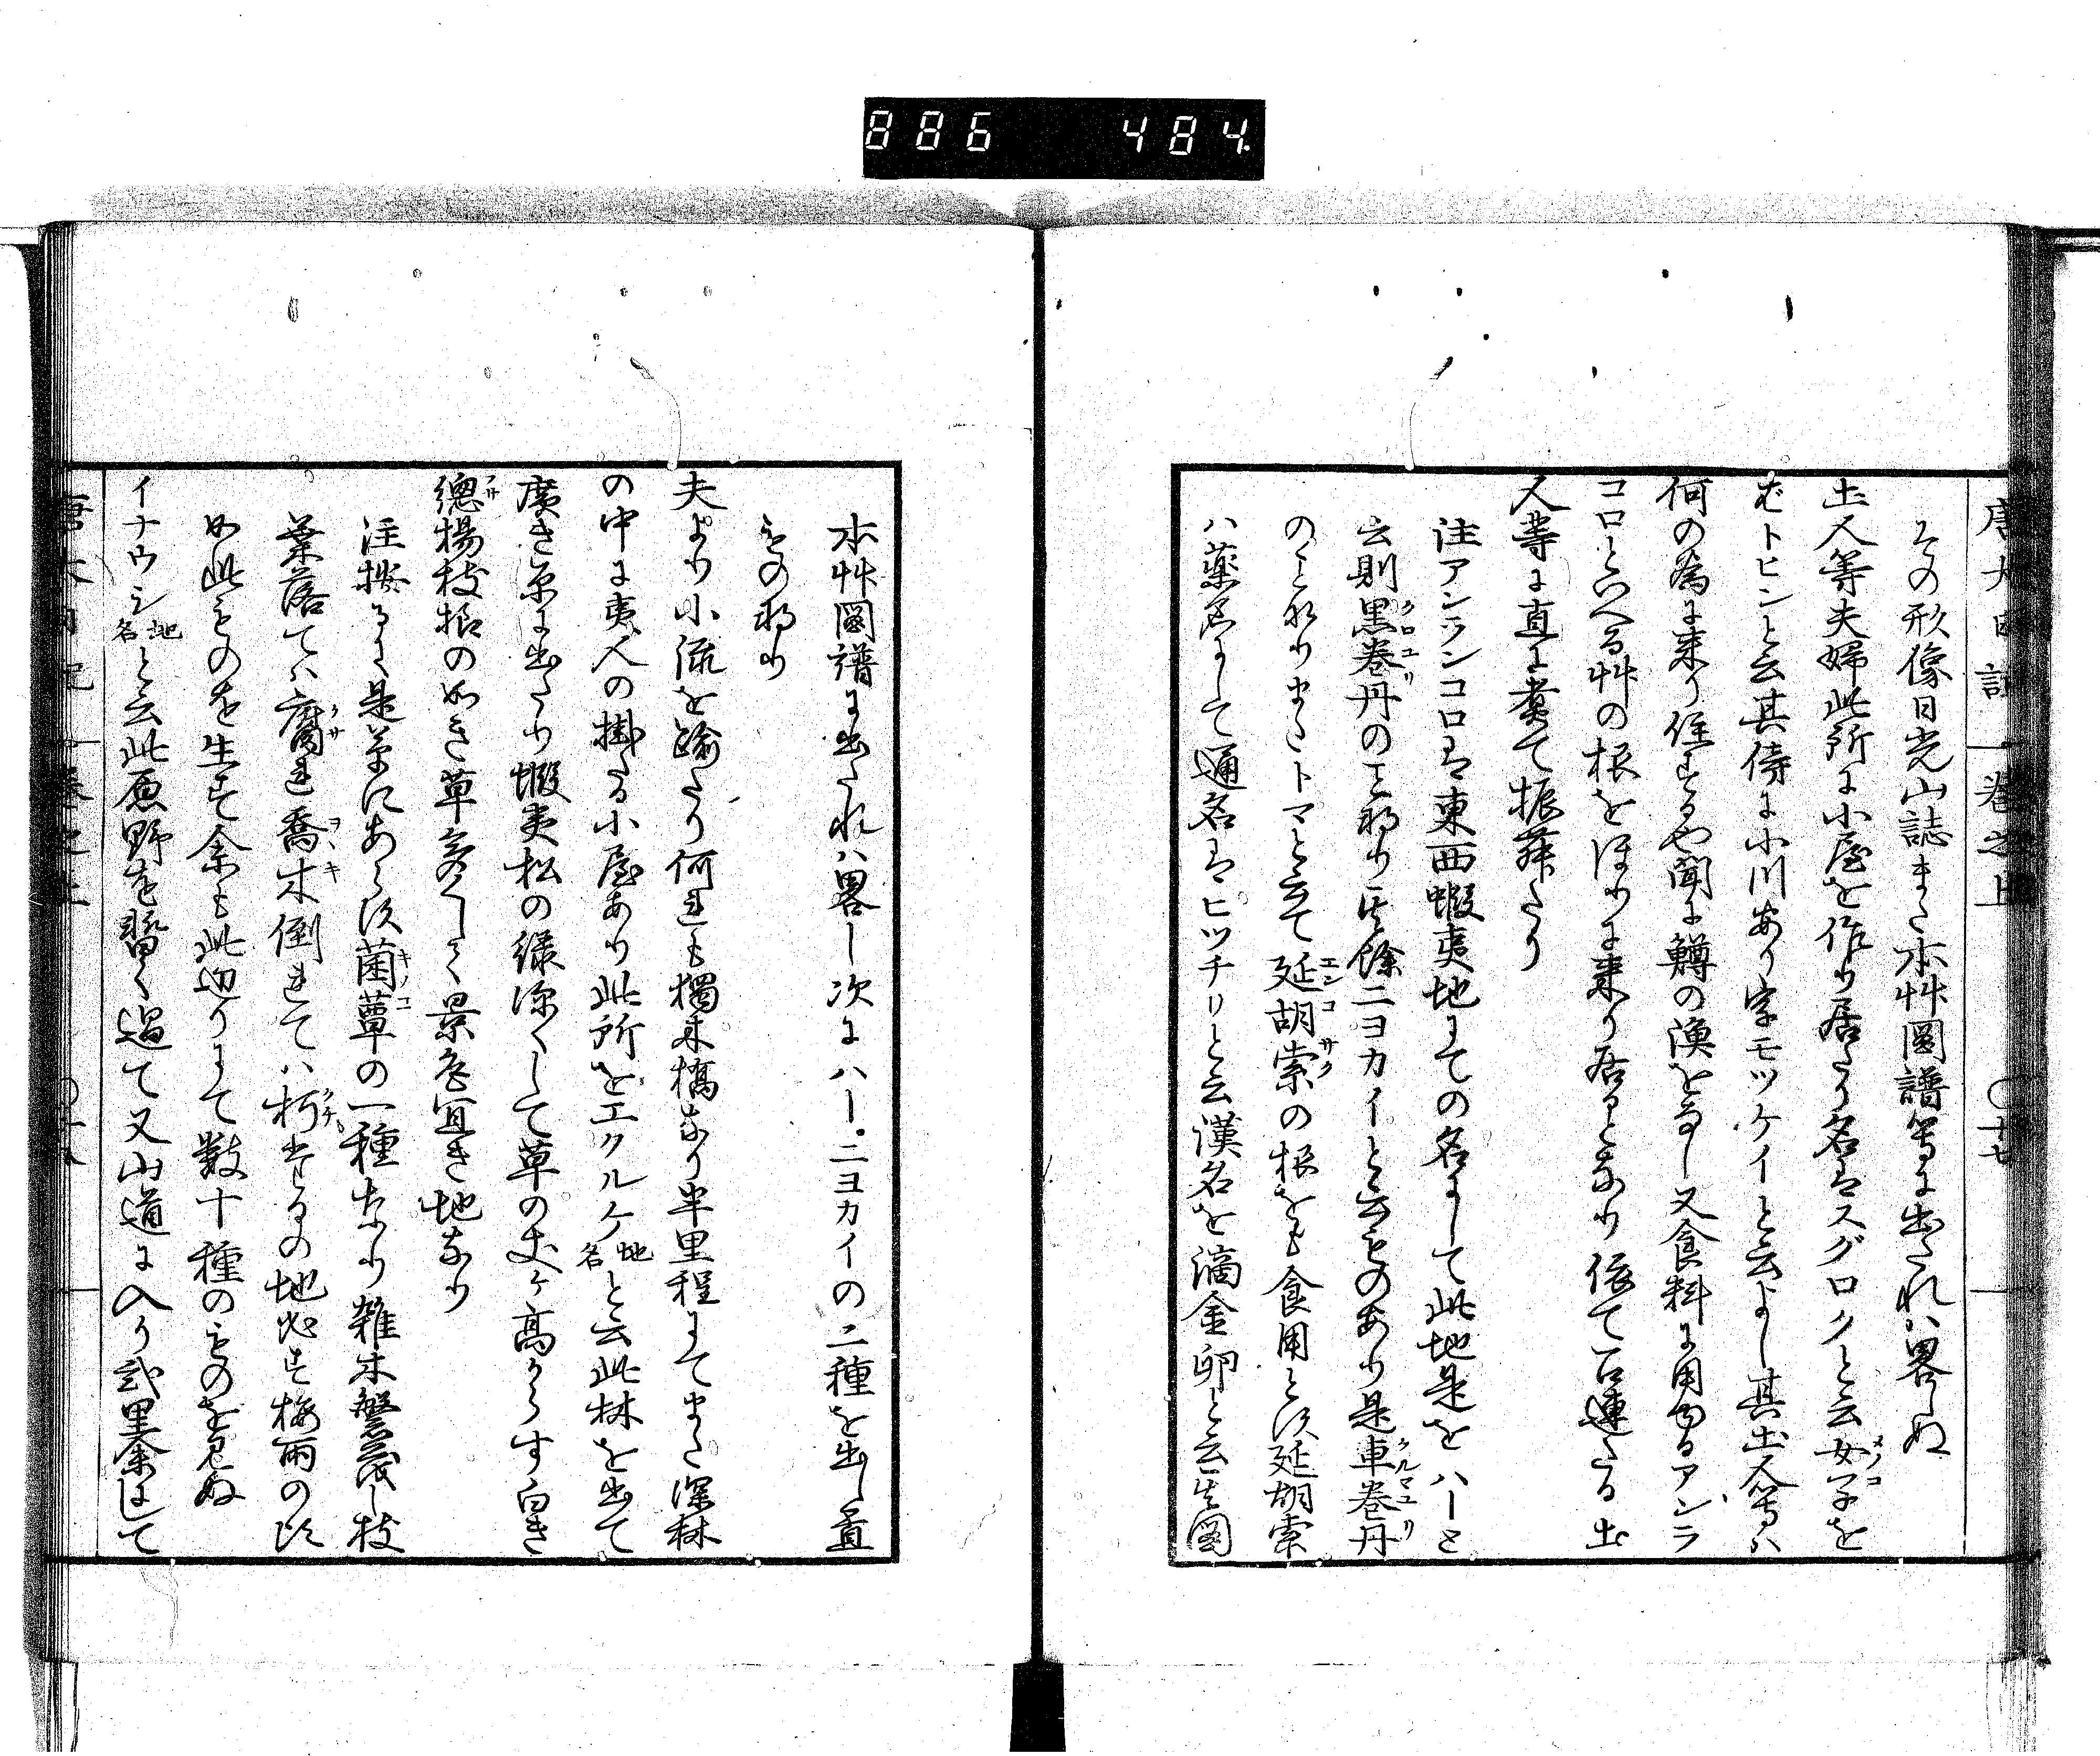 886 484
唐太日記 巻之上 〇十七
その形像日光山誌また本艸圖譜等に出たれハ畧しぬ
土人等夫婦此所に小屋を作り居たり名はスグロクと云女子を
トヒンと云其侍に小川あり字モツケイと云よし其土人等ハ
何の為に来り住するや聞に鱒の漁をなし又食料に用ゆるアンラ
コロといへる艸の根をほりに来り居るとなり依て召連たる土
人等に直に煮て振舞たり
注アンランコロは東西蝦夷地にての名にして此地是をハーと
云則黒巻丹のこと也り其餘ニヨカイと云ものあり是車巻丹
のことなりまたトマと云て延胡索の根をも食用とす延胡索
ハ薬名にして通名はヒツチリと云漢名を滴金卵と云生圖
本艸圖譜に出たれハ畧し次にハー。ニヨカイの二種を出し置
もの也り
夫より小流を踰たり何れも獨木橋なり半里程にてまた深林
の中に夷人の掛たる小屋あり此所をエクルケ地名と云此林を出て
廣き原に出たり蝦夷松の緑深くして草の丈ケ高からす白き
總楊枝招の如き草多くして景色宜き地なり
注按るに是草にあらす菌蕈の一種なり雑木繁茂し枝
葉落てハ腐れ喬木倒れてハ朽せるの地必す梅雨の頃
如此ものを生す余も此辺りにて数十種のものを見ぬ
イナウシ地名と云此原野を暫く過て又山道に入り弐里余にして